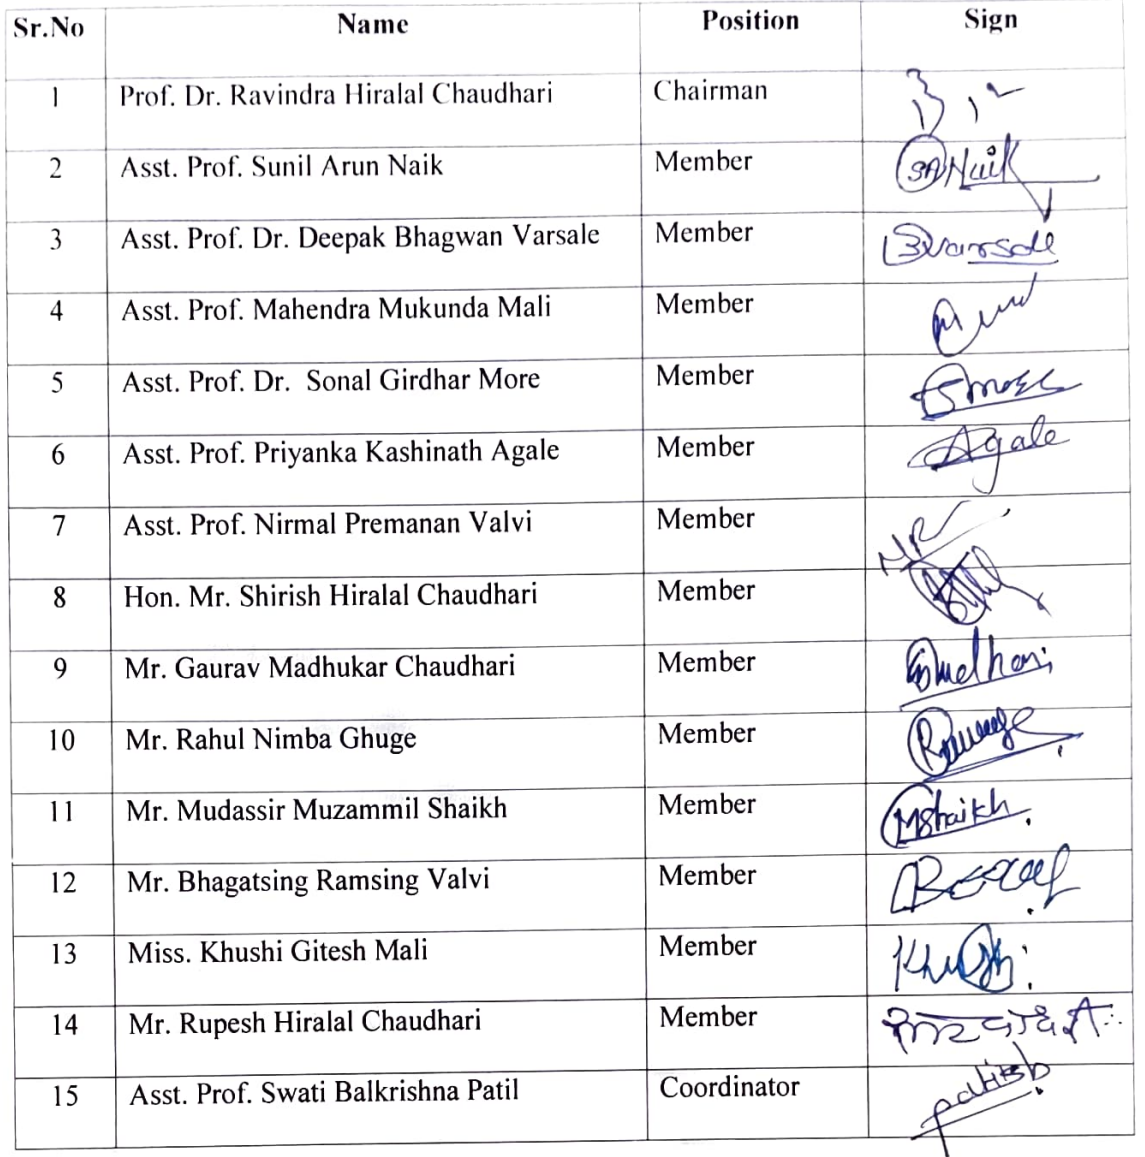 Sr.No Name Position Sign
1 Prof. Dr. Ravindra Hiralal Chaudhari Chairman
2 Asst. Prof. Sunil Arun Naik Member SANaik
3 Asst. Prof. Dr. Deepak Bhagwan Varsale Member Bvarsale
4 Asst. Prof. Mahendra Mukunda Mali Member
5 Asst. Prof. Dr. Sonal Girdhar More Member Smore
6 Asst. Prof. Priyanka Kashinath Agale Member Agale
7 Asst. Prof. Nirmal Premanan Valvi Member
8 Hon. Mr. Shirish Hiralal Chaudhari Member
9 Mr. Gaurav Madhukar Chaudhari Member
10 Mr. Rahul Nimba Ghuge Member
11 Mr. Mudassir Muzammil Shaikh Member MShaikh
12 Mr. Bhagatsing Ramsing Valvi Member
13 Miss. Khushi Gitesh Mali Member Khushi
14 Mr. Rupesh Hiralal Chaudhari Member
15 Asst. Prof. Swati Balkrishna Patil Coordinator patilsb